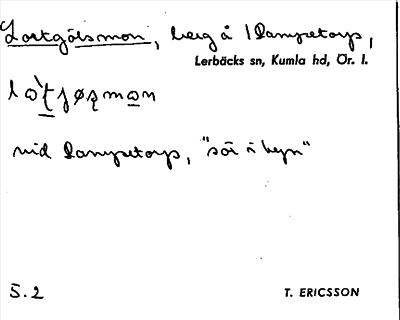 Lortgölsmon, berg å 1 Dampetorp,
Lerbäcks sn, Kumla hd, Ör. l.
vid Dampetorp, "sör i byn"
5.2 T. ERICSSON